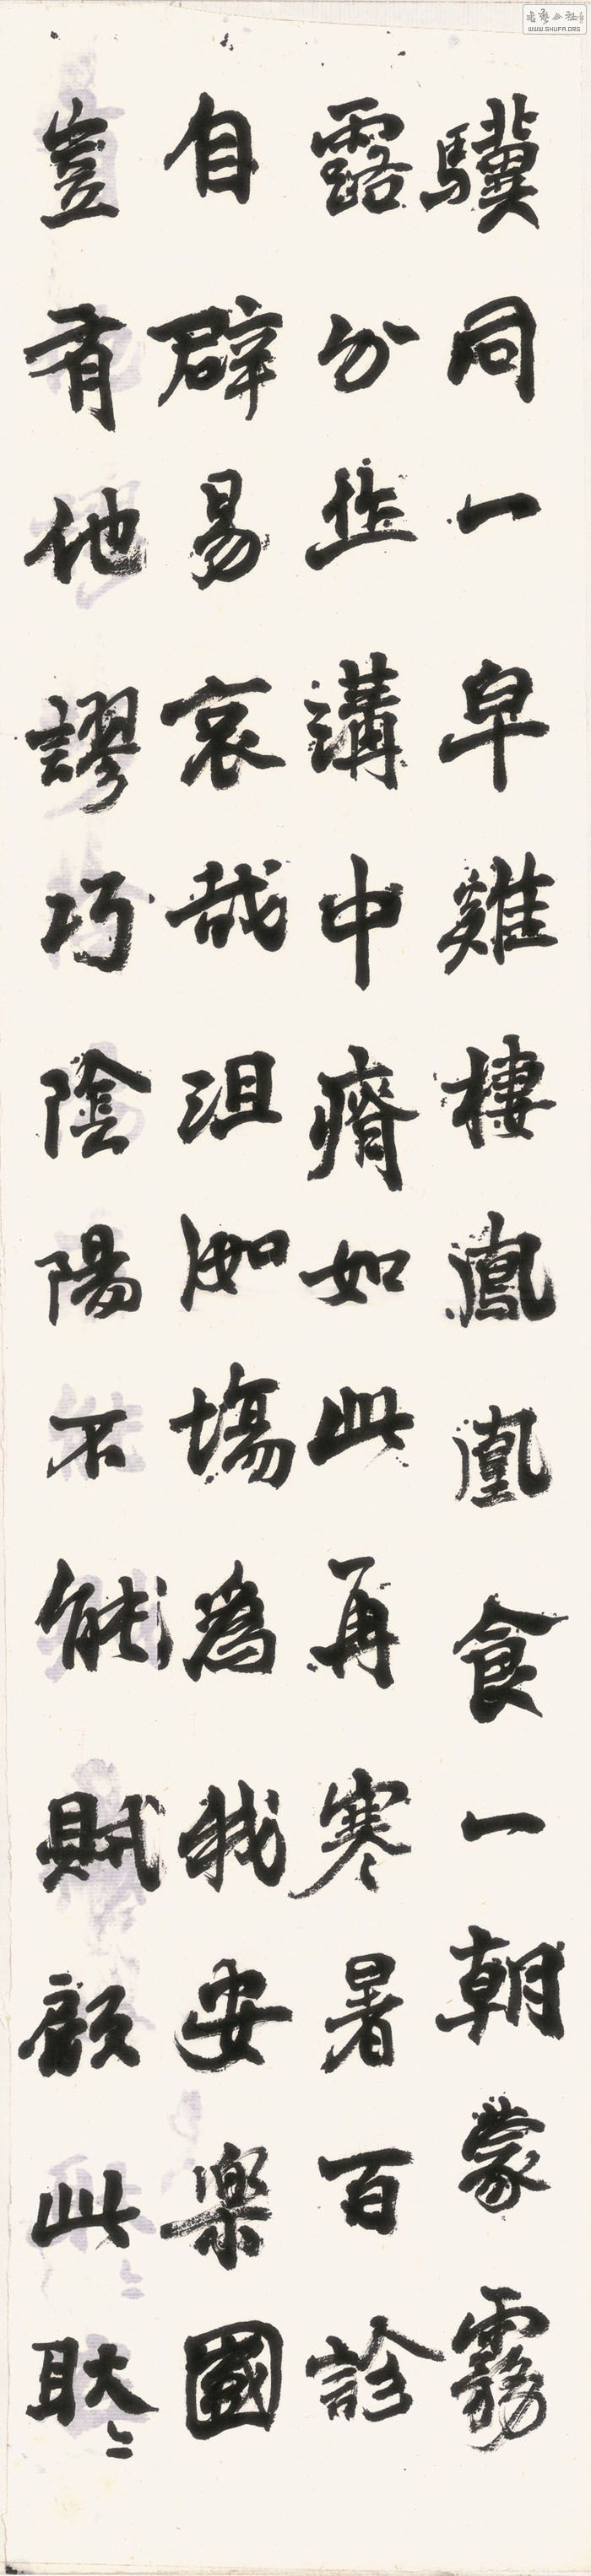 驥同一皁雞棲鳳凰食一朝蒙霧
露分作溝中瘠如此再寒暑百診
自辟易哀哉沮洳塲為我安樂國
豈有他謬巧陰陽不能賊顧此耿〻
WWW.SHUFA.ORG